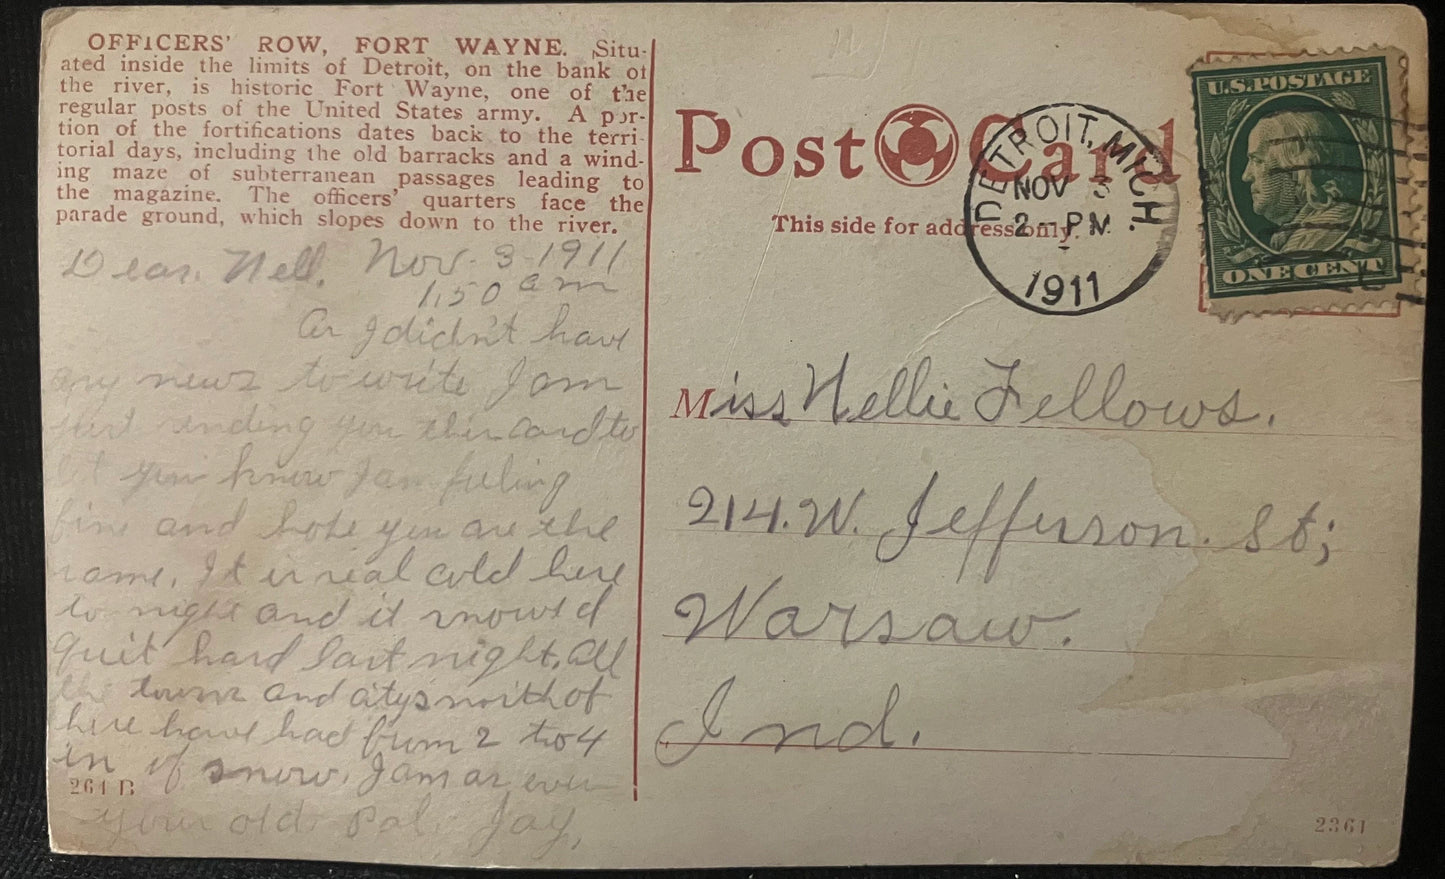 OFFICERS' ROW, FORT WAYNE. Situ-
ated inside the limits of Detroit, on the bank of
the river, is historic Fort Wayne, one of the
regular posts of the United States army. A por-
tion of the fortifications dates back to the terri-
torial days, including the old barracks and a wind-
ing maze of subterranean passages leading to
the magazine. The officers' quarters face the
parade ground, which slopes down to the river.
Dear Nell. Nov. 3-1911
1,50 am
As I didn't have
any news to write I am
just sending you this card to
let you know I am feeling
fine and hope you are the
same. It is real cold here
to night and it snowed
quit hard last night. All
the towns and citys north of
here have had from 2 to 4
in of snow. I am as ever
your old Pal. Jay,
264 B
Post Card
This side for address only.
DETROIT, MICH.
NOV 3
2 - PM
1911
U.S. POSTAGE
ONE CENT
Miss Nellie Fellows.
214. W. Jefferson. St;
Warsaw.
Ind.
2361